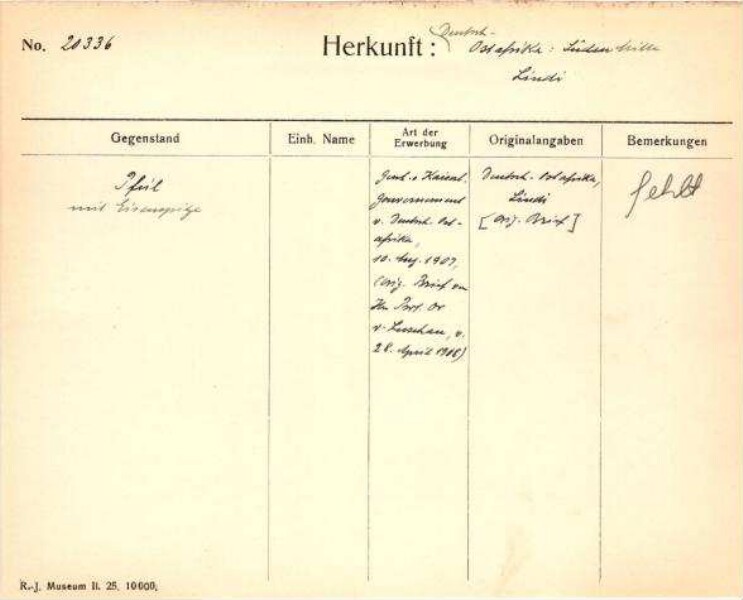 No. 20336
Herkunft: Deutsch-
Ostafrika: Süden Mitte
Lindi
Gegenstand
Einh. Name
Art der
Erwerbung
Originalangaben
Bemerkungen
Pfeil
mit Eisenspitze
Gesch. v. Kaiserl.
Gouvernement
v. Deutsch-Ost-
afrika,
10. Aug. 1907,
(Orig. Brief von
Hn Prof. Dr
v. Luschan, v.
28. April 1908)
Deutsch-Ostafrika,
Lindi
[Orig. Brief]
fehlt
R.-J. Museum II. 25. 10000.